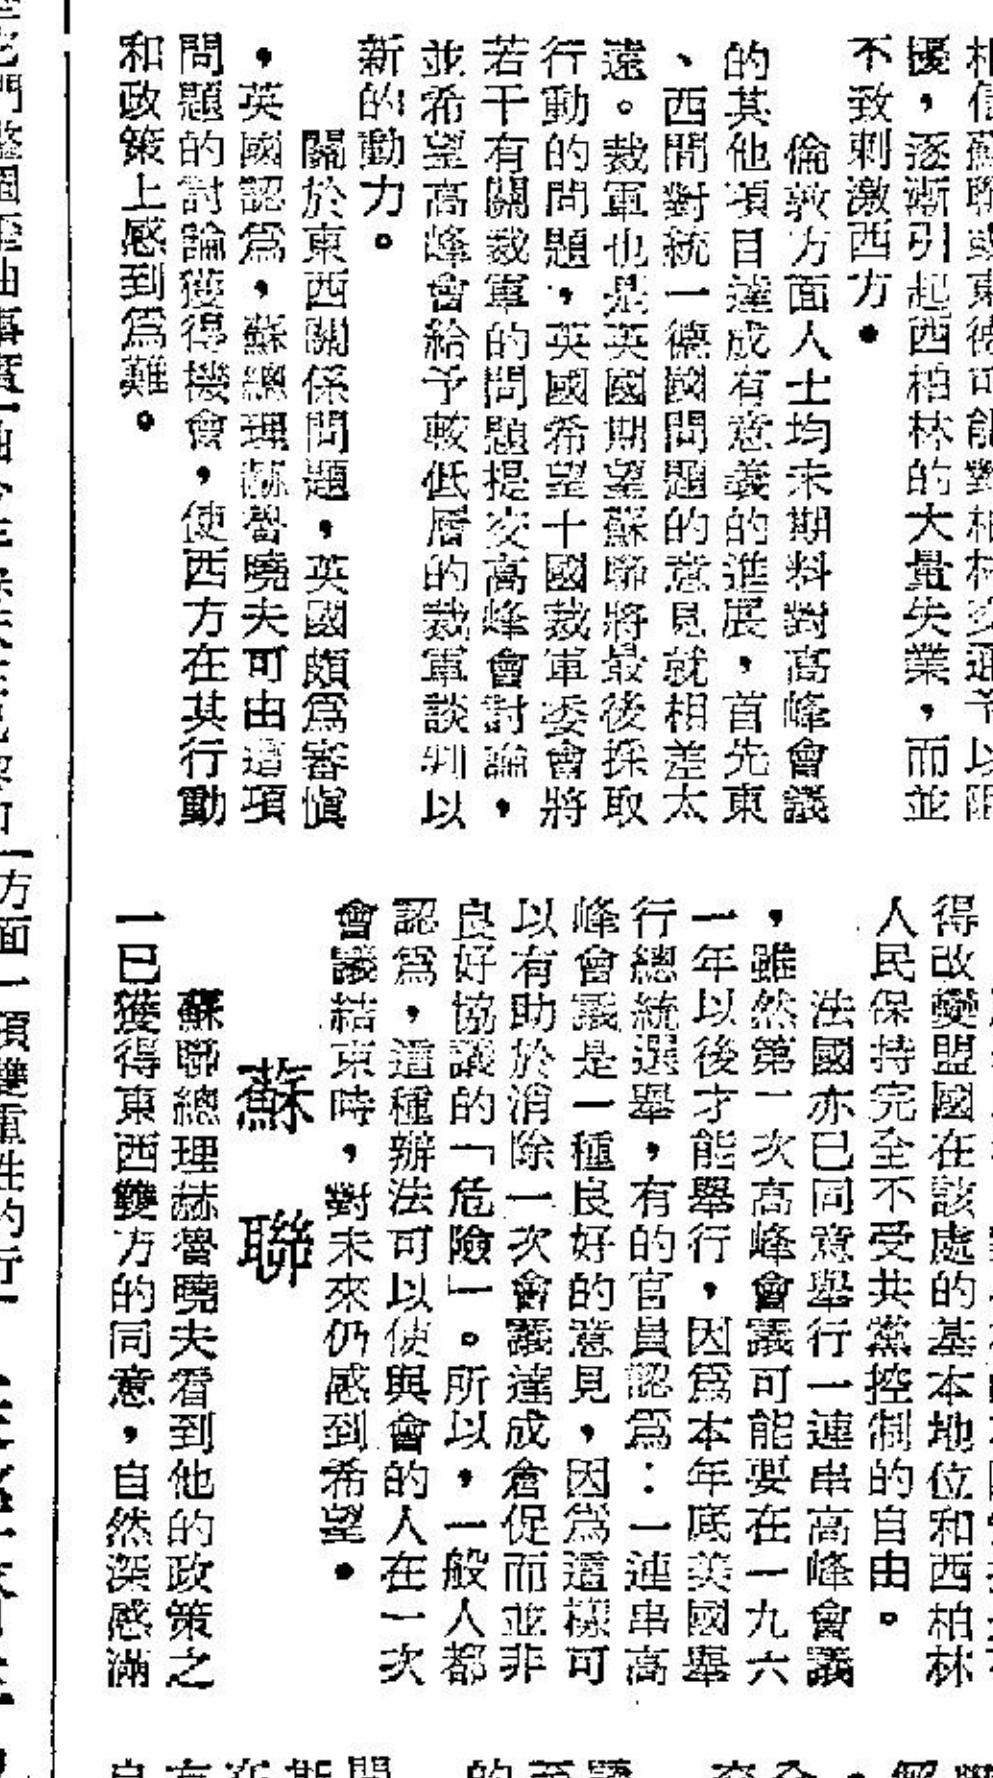 相信蘇聯或東德可能對柏林交通予以阻
擾，逐漸引起西柏林的大量失業，而並
不致刺激西方。
倫敦方面人士均未期料對高峰會議
的其他項目達成有意義的進展，首先東
、西間對統一德國問題的意見就相差太
遠。裁軍也是英國期望蘇聯將最後採取
行動的問題，英國希望十國裁軍委會將
若干有關裁軍的問題提交高峰會討論，
並希望高峰會給予較低層的裁軍談判以
新的動力。
關於東西關係問題，英國頗爲審愼
，英國認爲，蘇總理赫魯曉夫可由這項
問題的討論獲得機會，使西方在其行動
和政策上感到爲難。
得改變盟國在該處的基本地位和西柏林
人民保持完全不受共黨控制的自由。
法國亦已同意舉行一連串高峰會議
，雖然第一次高峰會議可能要在一九六
一年以後才能舉行，因爲本年底美國舉
行總統選舉，有的官員認爲：一連串高
峰會議是一種良好的意見，因爲這樣可
以有助於消除一次會議達成倉促而並非
良好協議的「危險」。所以，一般人都
認爲，這種辦法可以使與會的人在一次
會議結束時，對未來仍感到希望。
蘇聯
蘇聯總理赫魯曉夫看到他的政策之
一已獲得東西雙方的同意，自然深感滿